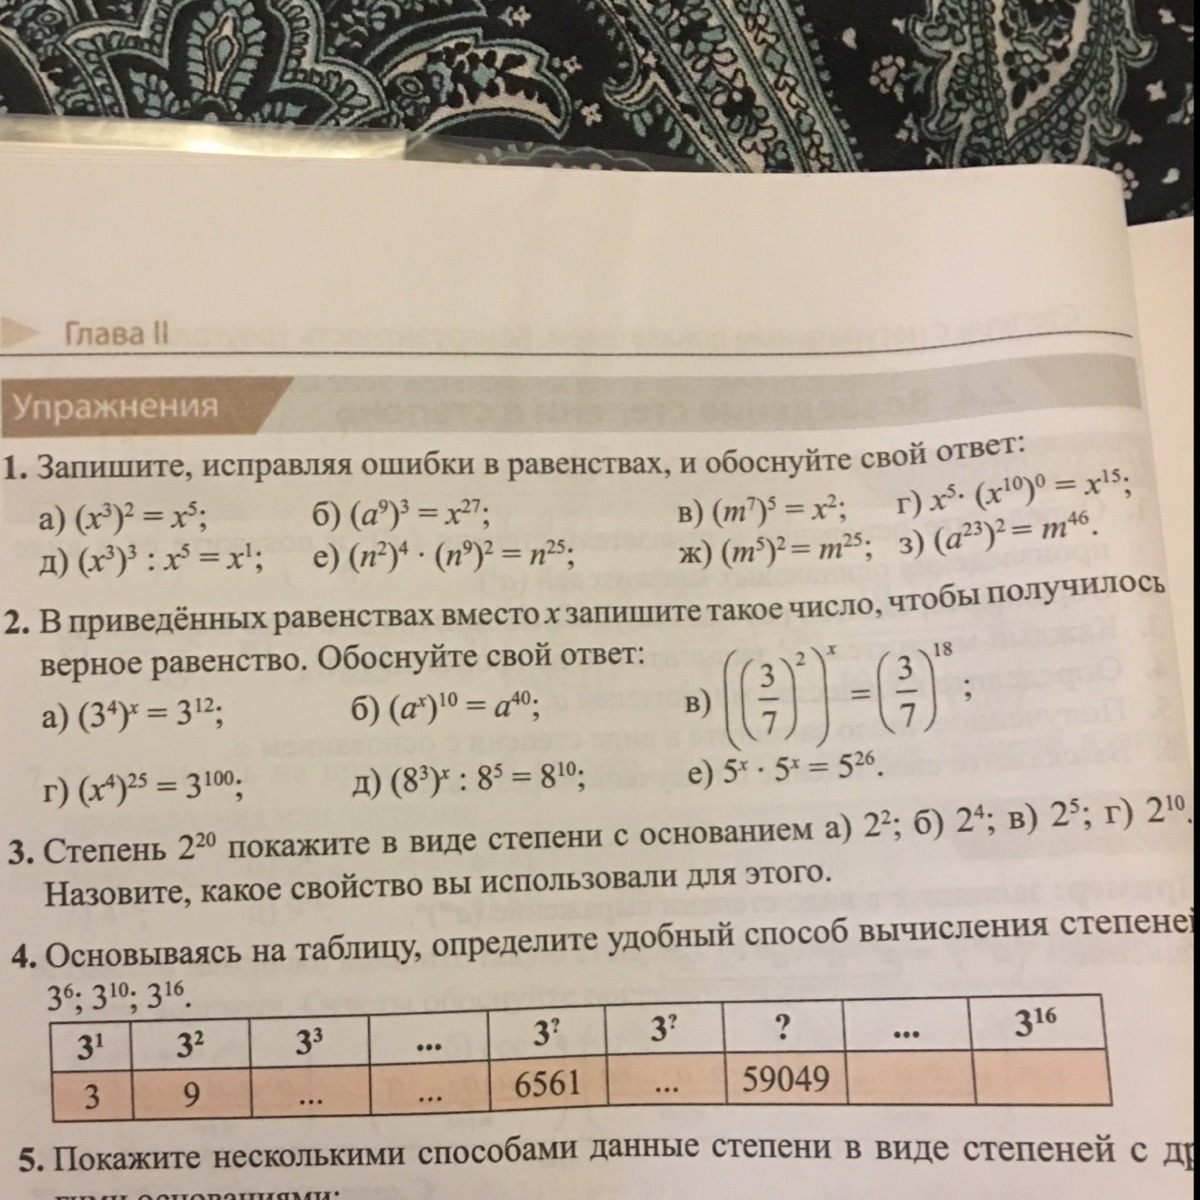 Глава II
Упражнения
1. Запишите, исправляя ошибки в равенствах, и обоснуйте свой ответ:
а) (x³)² = x⁵; б) (a⁹)³ = x²⁷; в) (m⁷)⁵ = x²; г) x⁵· (x¹⁰)⁰ = x¹⁵;
д) (x³)³ : x⁵ = x¹; е) (n²)⁴ · (n⁹)² = n²⁵; ж) (m⁵)² = m²⁵; з) (a²³)² = m⁴⁶.
2. В приведённых равенствах вместо x запишите такое число, чтобы получилось
верное равенство. Обоснуйте свой ответ:
а) (3⁴)ˣ = 3¹²; б) (aˣ)¹⁰ = a⁴⁰; в) ((3/7)²)ˣ = (3/7)¹⁸;
г) (x⁴)²⁵ = 3¹⁰⁰; д) (8³)ˣ : 8⁵ = 8¹⁰; е) 5ˣ · 5ˣ = 5²⁶.
3. Степень 2²⁰ покажите в виде степени с основанием а) 2²; б) 2⁴; в) 2⁵; г) 2¹⁰.
Назовите, какое свойство вы использовали для этого.
4. Основываясь на таблицу, определите удобный способ вычисления степеней
3⁶; 3¹⁰; 3¹⁶.
3¹ 3² 3³ ... 3^? 3^? ? ... 3¹⁶
3 9 ... ... 6561 ... 59049
5. Покажите несколькими способами данные степени в виде степеней с др
гими основаниями: